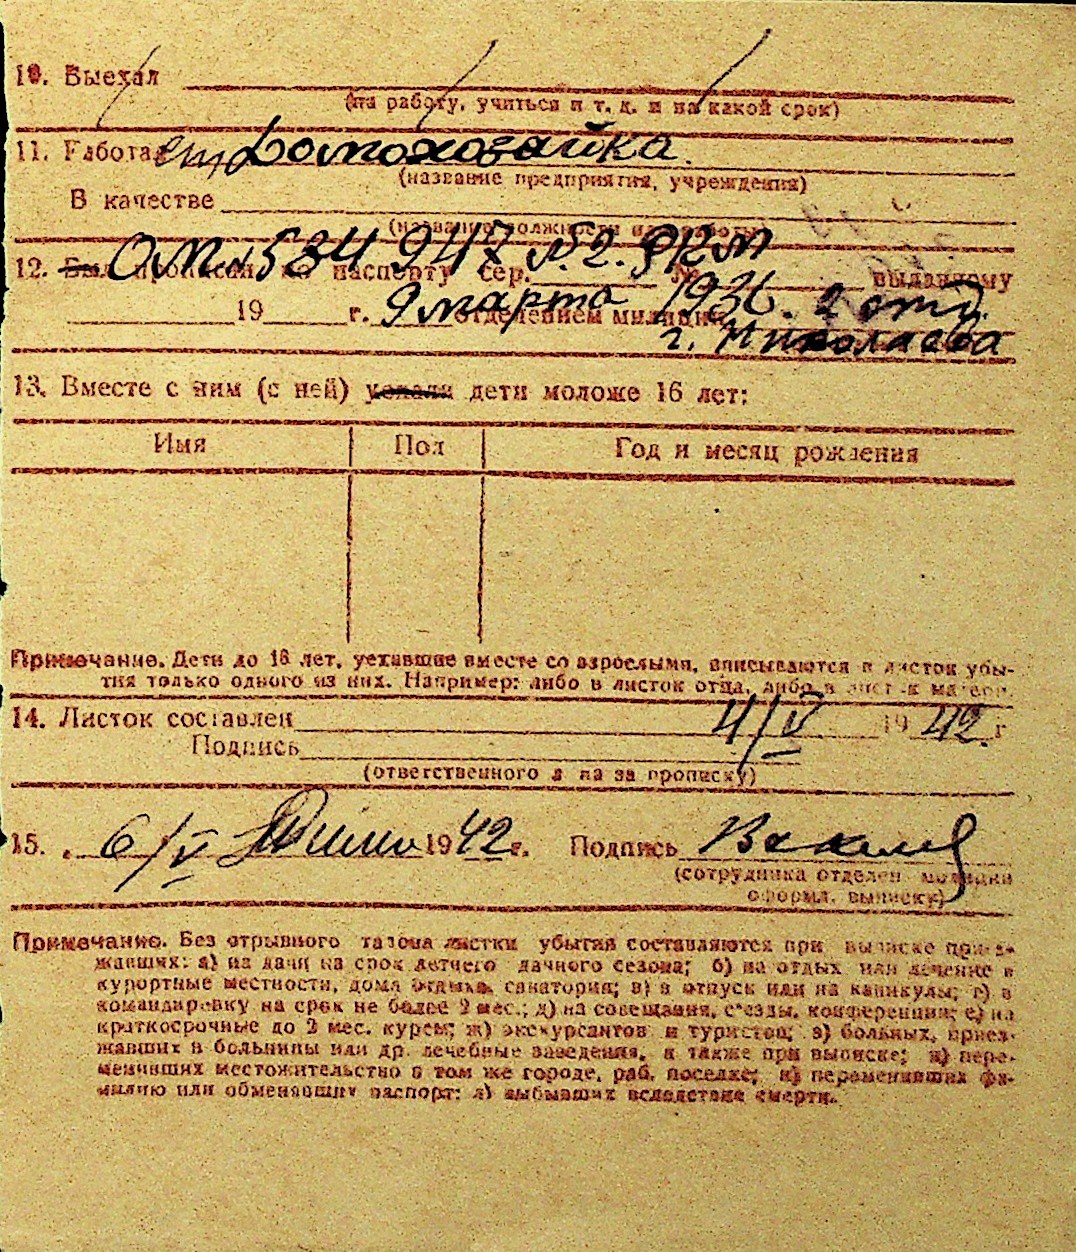 10. Выехал
(на работу, учиться и т. д. и на какой срок)
11. Работа Домохозайка.
(название предприятия, учреждения)
В качестве
(название должности или работы)
ОМ № 534 947 РКМ
12. Был прописан по паспорту сер. № выданному
9 марта 1936. 2 отд.
19 г. отделением милиции
г. Николаева
13. Вместе с ним (с ней) уехали дети моложе 16 лет:
Имя Пол Год и месяц рождения
Примечание. Дети до 16 лет, уехавшие вместе со взрослыми, вписываются в листок убы-
тия только одного из них. Например: либо в листок отца, либо в листок матери.
14. Листок составлен 4/V 1942 г
Подпись
(ответственного л на за прописку)
15. 6/V 1942 г. Подпись
(сотрудника отделен милиции
оформл. выписку)
Примечание. Без отрывного талона листки убытия составляются при выписке приез-
жавших: а) на дачи на срок летнего дачного сезона; б) на отдых или лечение в
курортные местности, дома отдыха, санатории; в) в отпуск или на каникулы; г) в
командировку на срок не более 2 мес.; д) на совещания, съезды, конференции; е) на
краткосрочные до 2 мес. курсы; ж) экскурсантов и туристов; з) больных, приез-
жавших в больницы или др. лечебные заведения, а также при выписке; и) пере-
менивших местожительство в том же городе, раб. поселке; к) переменивших фа-
милию или обменявших паспорт; л) выбывших вследствие смерти.